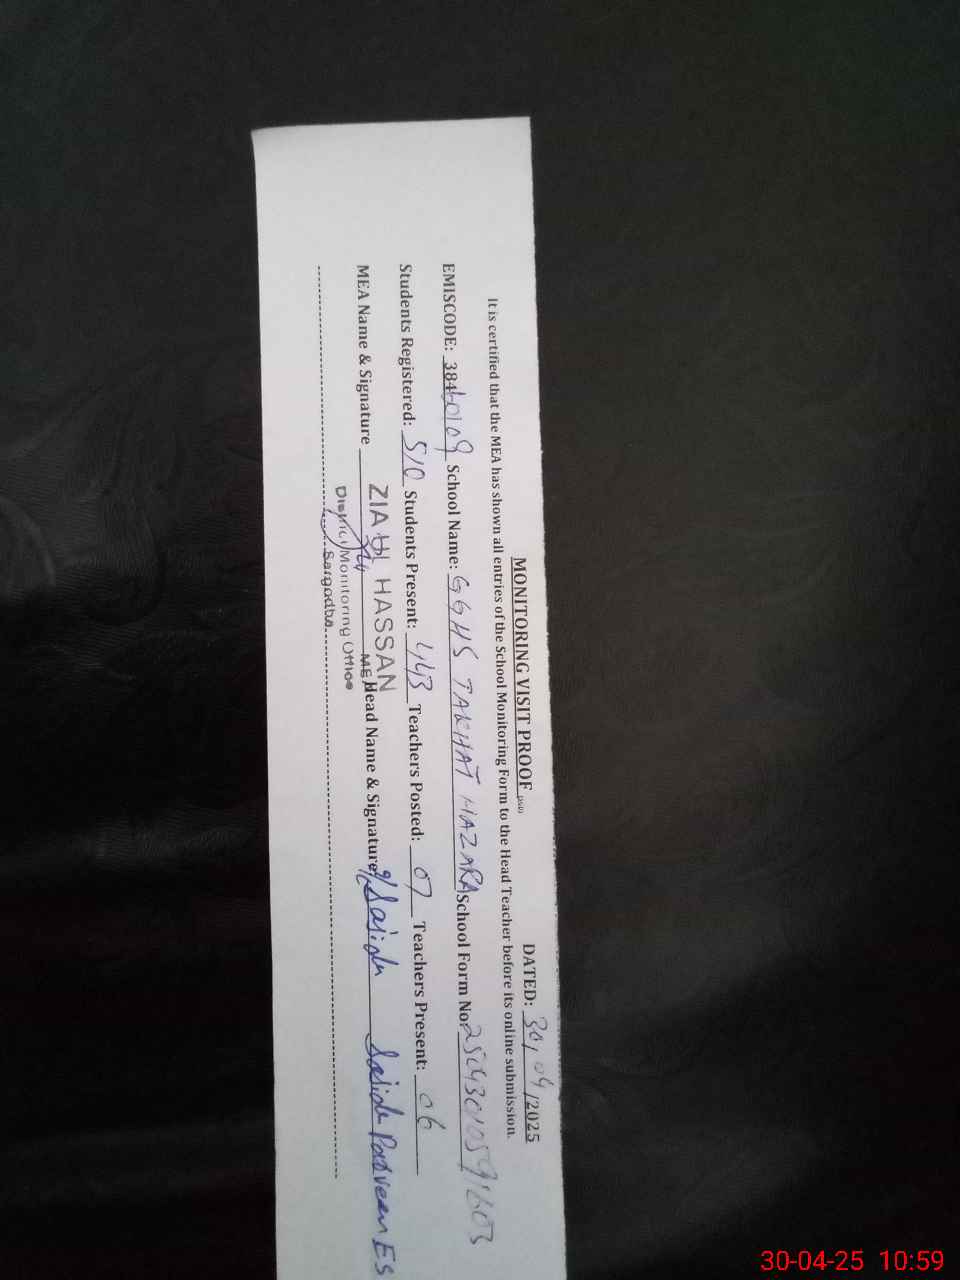 MONITORING VISIT PROOF DATED: 30/04/2025
It is certified that the MEA has shown all entries of the School Monitoring Form to the Head Teacher before its online submission.
EMISCODE: 38460109 School Name: GGHS TAKHAT HAZARA School Form No: 25043010591603
Students Registered: 510 Students Present: 443 Teachers Posted: 07 Teachers Present: 06
MEA Name & Signature ZIA UL HASSAN MEA Head Name & Signature Sajida Sajida Parveen ES
District Monitoring Office
Sargodha
30-04-25 10:59